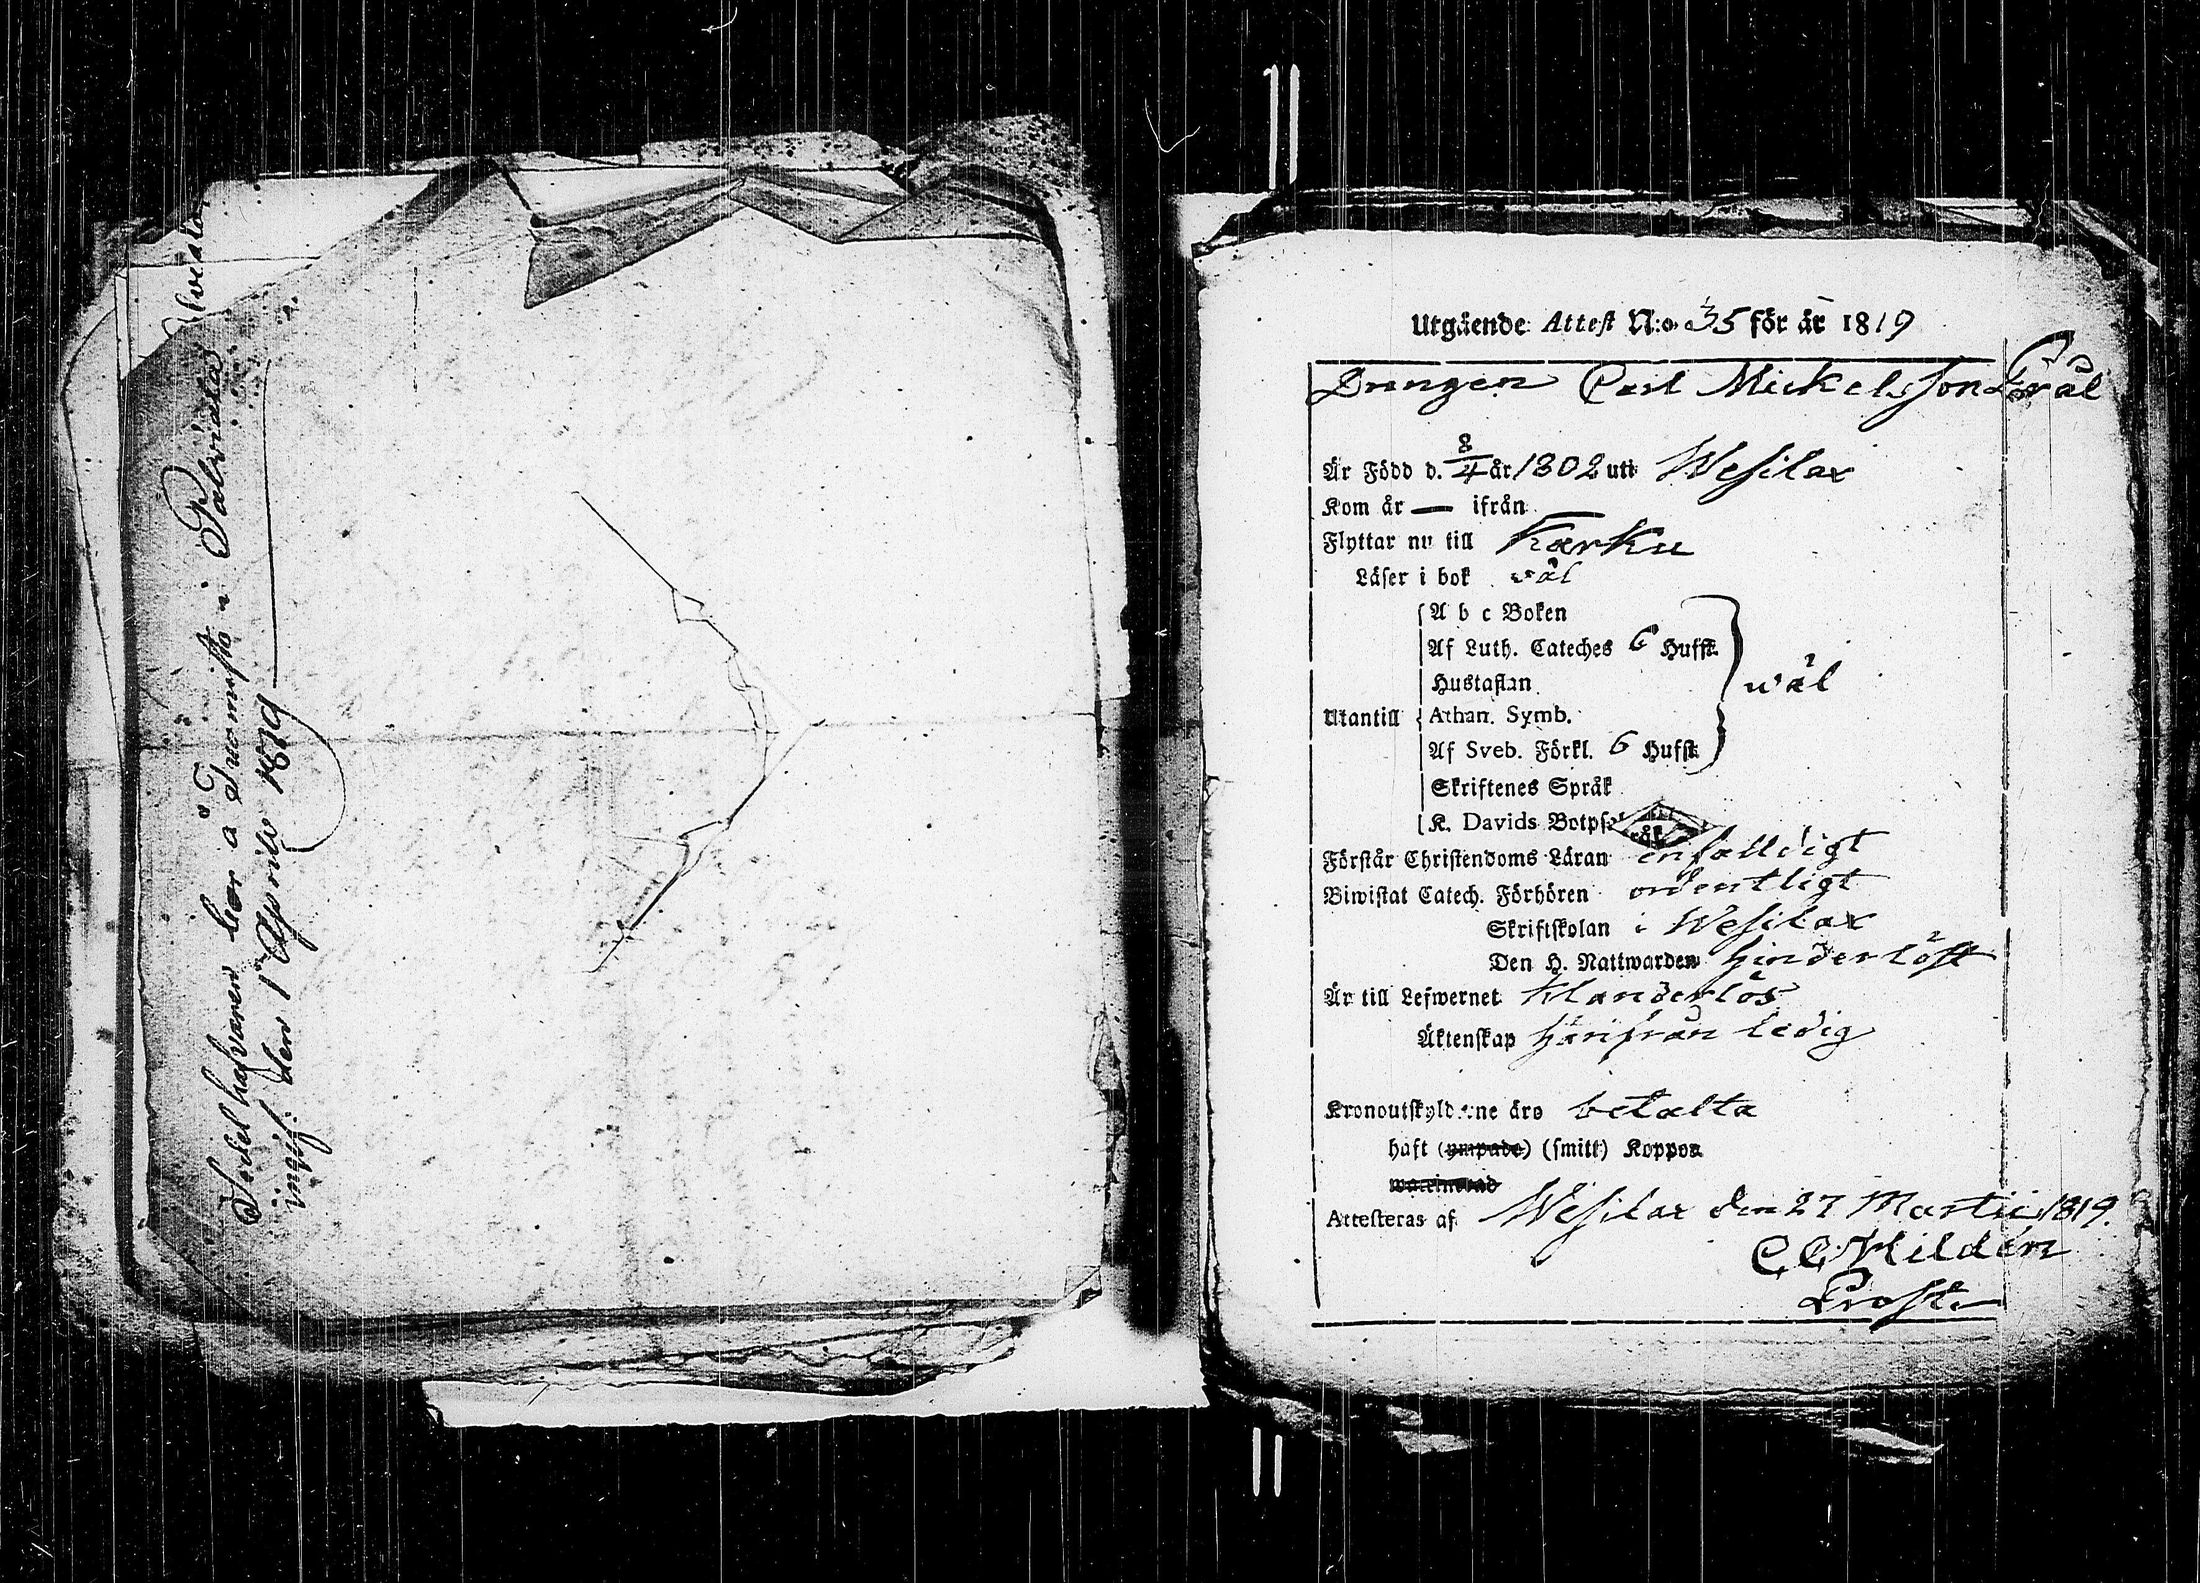 Sedel hafvaren bor å Tuomisto i Palviala
ingif: den 1 Aprill 1819
Utgående Attest N:o 35 för år 1819
Drengen Carl Mickelsson
Är Född d. 8/4 år 1802 uti Wesilax
Kom år — ifrån —
Flyttar nu till Karku
Läser i bok wäl
A b c Boken
Af Luth. Cateches 6 Hufst.
Hustaflan wäl
Utantill Athan. Symb.
Af Sveb. Förkl. 6 Hufst.
Skriftenes Språk
K. Davids Botps
Förstår Christendoms Läran enfalldigt
Biwistat Catech. Förhören ordentligt
Skriftskolan i Wesilax
Den H. Nattwarden hinderlöst
Är till Lefwernet klanderlös
Äktenskap härifrån ledig
Kronoutskylderne äro betalta
haft (ympade) (smitt) Koppor
Attesteras af Wesilax den 27 Martii 1819.
C C Kildén
Prost